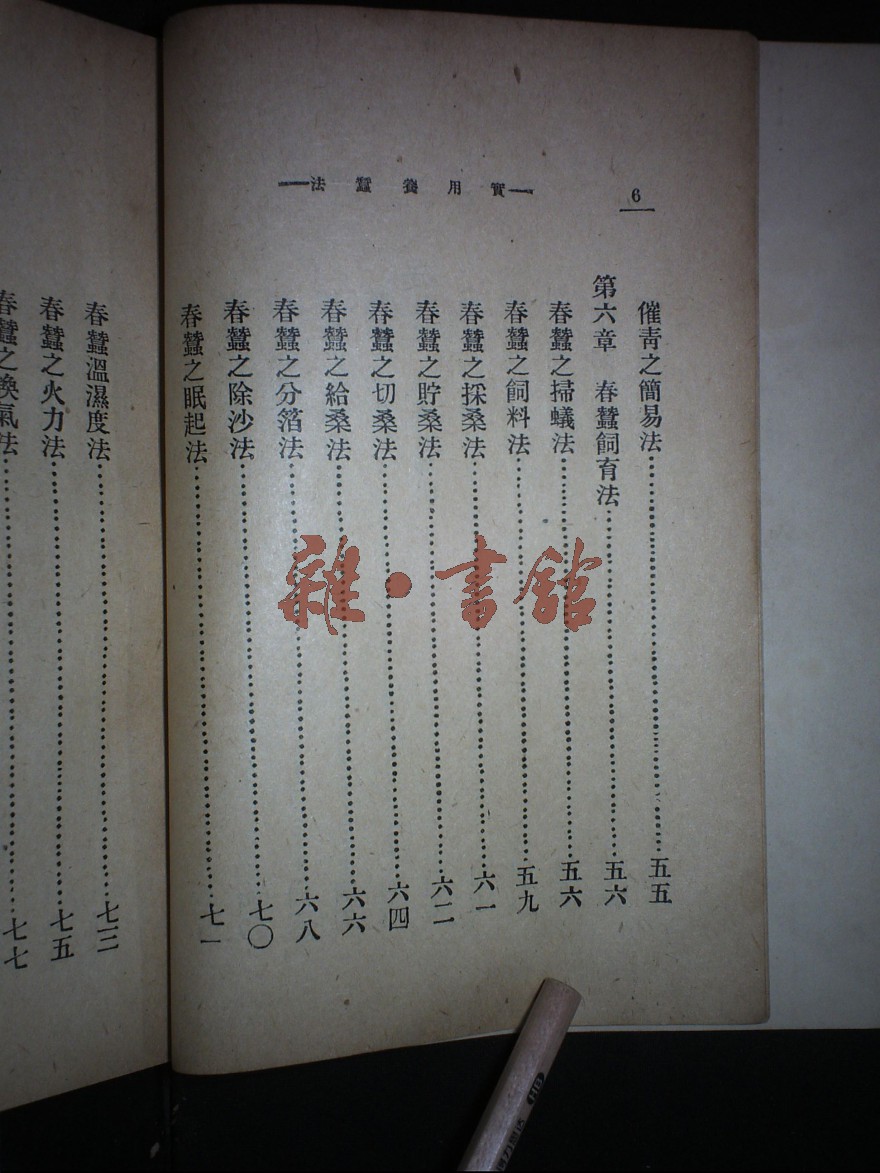 6
實用養蠶法
催靑之簡易法 五五
第六章 春蠶飼育法 五六
春蠶之掃蟻法 五六
春蠶之飼料法 五九
春蠶之採桑法 六一
春蠶之貯桑法 六二
春蠶之切桑法 六四
春蠶之給桑法 六六
春蠶之分箔法 六八
春蠶之除沙法 七〇
春蠶之眠起法 七一
春蠶溫濕度法 七三
春蠶之火力法 七五
春蠶之換氣法 七七
雜·書館
HB